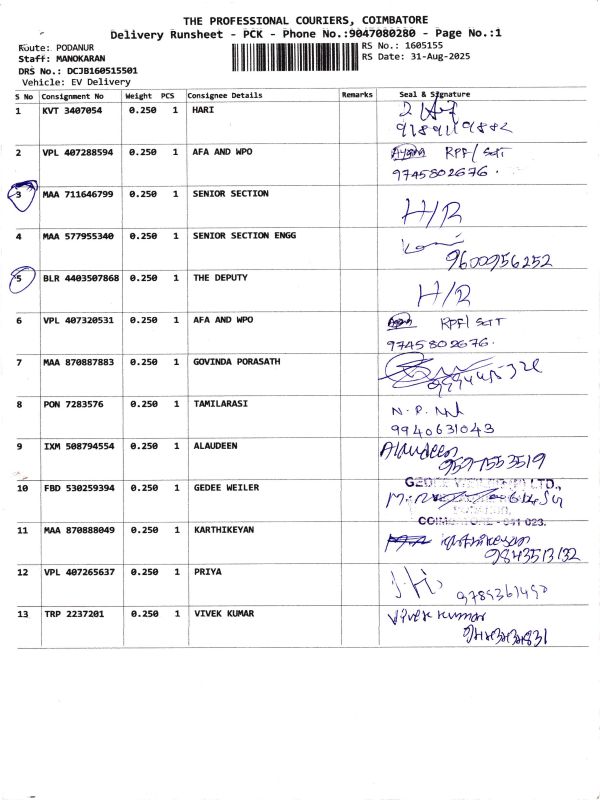 THE PROFESSIONAL COURIERS, COIMBATORE
Delivery Runsheet - PCK - Phone No.:9047080280 - Page No.:1
Route: PODANUR
RS No.: 1605155
Staff: MANOKARAN
RS Date: 31-Aug-2025
DRS No.: DCJB160515501
Vehicle: EV Delivery
S No Consignment No Weight PCS Consignee Details Remarks Seal & Signature
1 KVT 3407054 0.250 1 HARI
9789119882
2 VPL 407288594 0.250 1 AFA AND WPO RPF/ SGT
9745802676.
3 MAA 711646799 0.250 1 SENIOR SECTION H/R
4 MAA 577955340 0.250 1 SENIOR SECTION ENGG
9600956252
5 BLR 4403507868 0.250 1 THE DEPUTY H/R
6 VPL 407320531 0.250 1 AFA AND WPO RPF/ SGT
9745802676.
7 MAA 870887883 0.250 1 GOVINDA PORASATH
8 PON 7283576 0.250 1 TAMILARASI N.P.
9940631043
9 IXM 508794554 0.250 1 ALAUDEEN Alaudeen
9597553519
10 FBD 530259394 0.250 1 GEDEE WEILER GEDEE WEILER (P) LTD.,
COIMBATORE - 641 023.
11 MAA 870888049 0.250 1 KARTHIKEYAN Karthikeyan
9843513132
12 VPL 407265637 0.250 1 PRIYA
9789361490
13 TRP 2237201 0.250 1 VIVEK KUMAR Vivek kumar